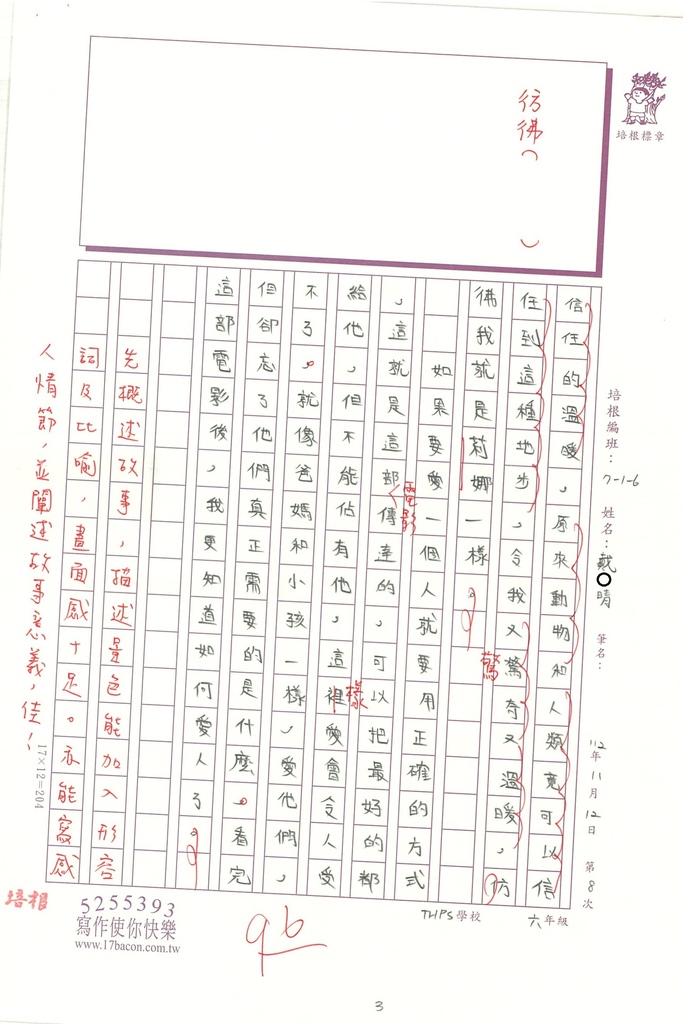 彷彿（　）
培根標章
培根編班：7-1-6 姓名：戴 晴 筆名：
112年11月12日 第8次
六年級
THPS學校
信任的溫暖，原來動物和人類竟可以信
任到這種地步，令我又驚奇又溫暖，彷
驚
彿我就是莉娜一樣。
如果要愛一個人就要用正確的方式
，這就是這部傳達的，可以把最好的都
電影
給他，但不能佔有他，這裡愛會令人受
樣
不了。就像爸媽和小孩一樣，愛他們，
但卻忘了他們真正需要的是什麼。看完
這部電影後，我更知道如何愛人了。
先概述故事，描述景色能加入形容
詞及比喻，畫面感十足。亦能寫感
人情節，並闡述故事意義，佳！
17×12=204
培根
5255393
寫作使你快樂
www.17bacon.com.tw
96
3